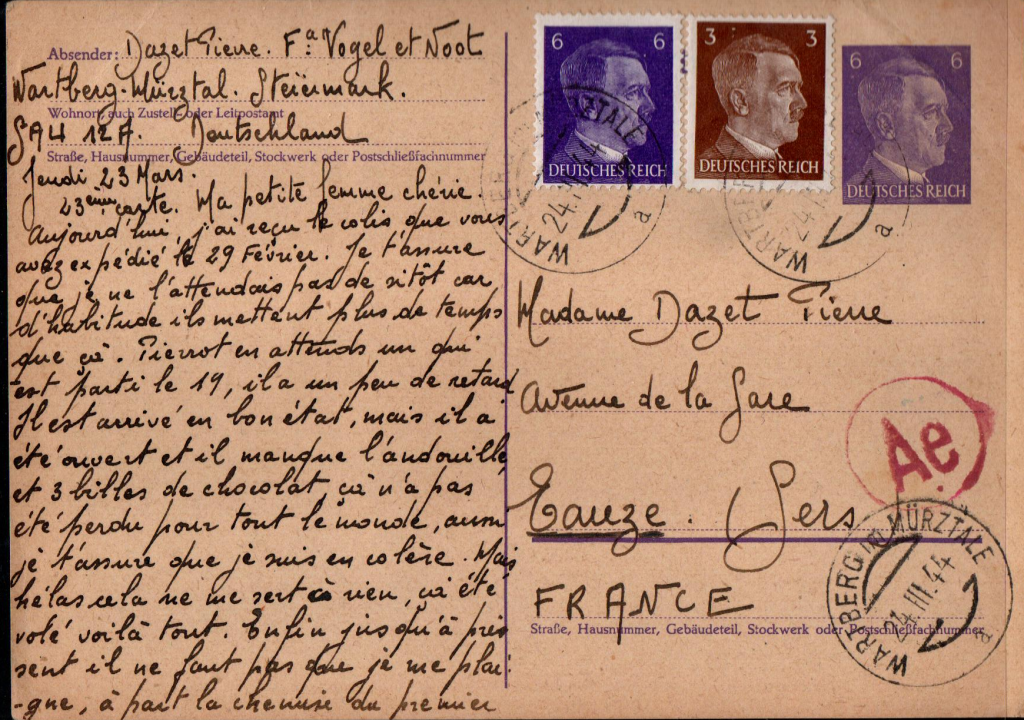 Absender: Dazet Pierre. Fa. Vogel et Noot
Wartberg-Mürztal. Steiermark.
Wohnort, auch Zustell- oder Leitpostamt
12A. Deutschland
Straße, Hausnummer, Gebäudeteil, Stockwerk oder Postschließfachnummer
Jeudi 23 Mars.
23ème carte. Ma petite femme chérie.
Aujourd'hui, j'ai reçu le colis que vous
avez expédié le 29 Février. Je t'assure
que je ne l'attendais pas de sitôt car
d'habitude ils mettent plus de temps
que ça. Pierrot en attends un qui
est parti le 19, il a un peu de retard
Il est arrivé en bon état, mais il a
été ouvert et il manque l'andouille
et 3 billes de chocolat, ça n'a pas
été perdu pour tout le monde, aussi
je t'assure que je suis en colère. Mais
hélas cela ne me sert à rien, ça été
volé voilà tout. Enfin jusqu'à pré
sent il ne faut pas que je me plai-
-gne, à part la chemise du premier
6 6
DEUTSCHES REICH
3 3
DEUTSCHES REICH
6 6
DEUTSCHES REICH
WARTBERG MÜRZTALE
24.
a
WARTBERG
24.
a
Madame Dazet Pierre
Avenue de la Gare
Eauze. Gers
FRANCE
Straße, Hausnummer, Gebäudeteil, Stockwerk oder Postschließfachnummer
Ae
WARTBERG im MÜRZTALE
24.III.44
a